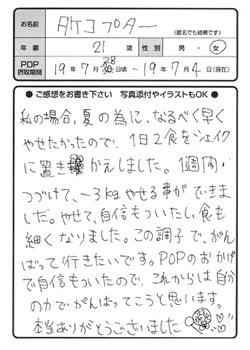 お名前 タケコプター
(匿名でも結構です)
年齢 21歳 性別 男・女
POP摂取期間 19年7月28日頃 ~ 19年7月4日(現在)
● ご感想をお書き下さい 写真添付やイラストもOK ●
私の場合、夏の為に、なるべく早く
やせたかったので、1日2食をシェイク
に置きかえしました。1週間
つづけて、-3kgやせる事ができま
した。やせて、自信もついたし、食も
細くなりました。この調子で、がん
ばって行きたいです。POPのおかげ
で自信もついたので、これからは自分
の力でがんばってこうと思います。
本当ありがとうございました